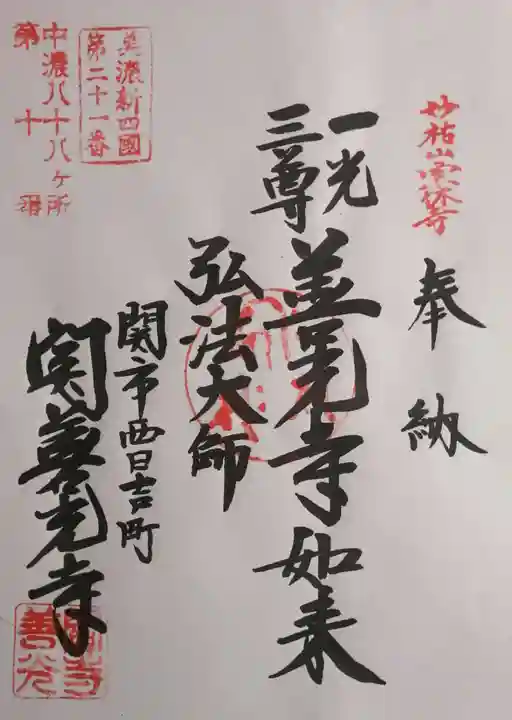 妙祐山宗休寺
奉納
一光
三尊
善光寺如来
弘法大師
関市西日吉町
関善光寺
美濃新四國
第二十一番
中濃八十八ヶ所
第十番